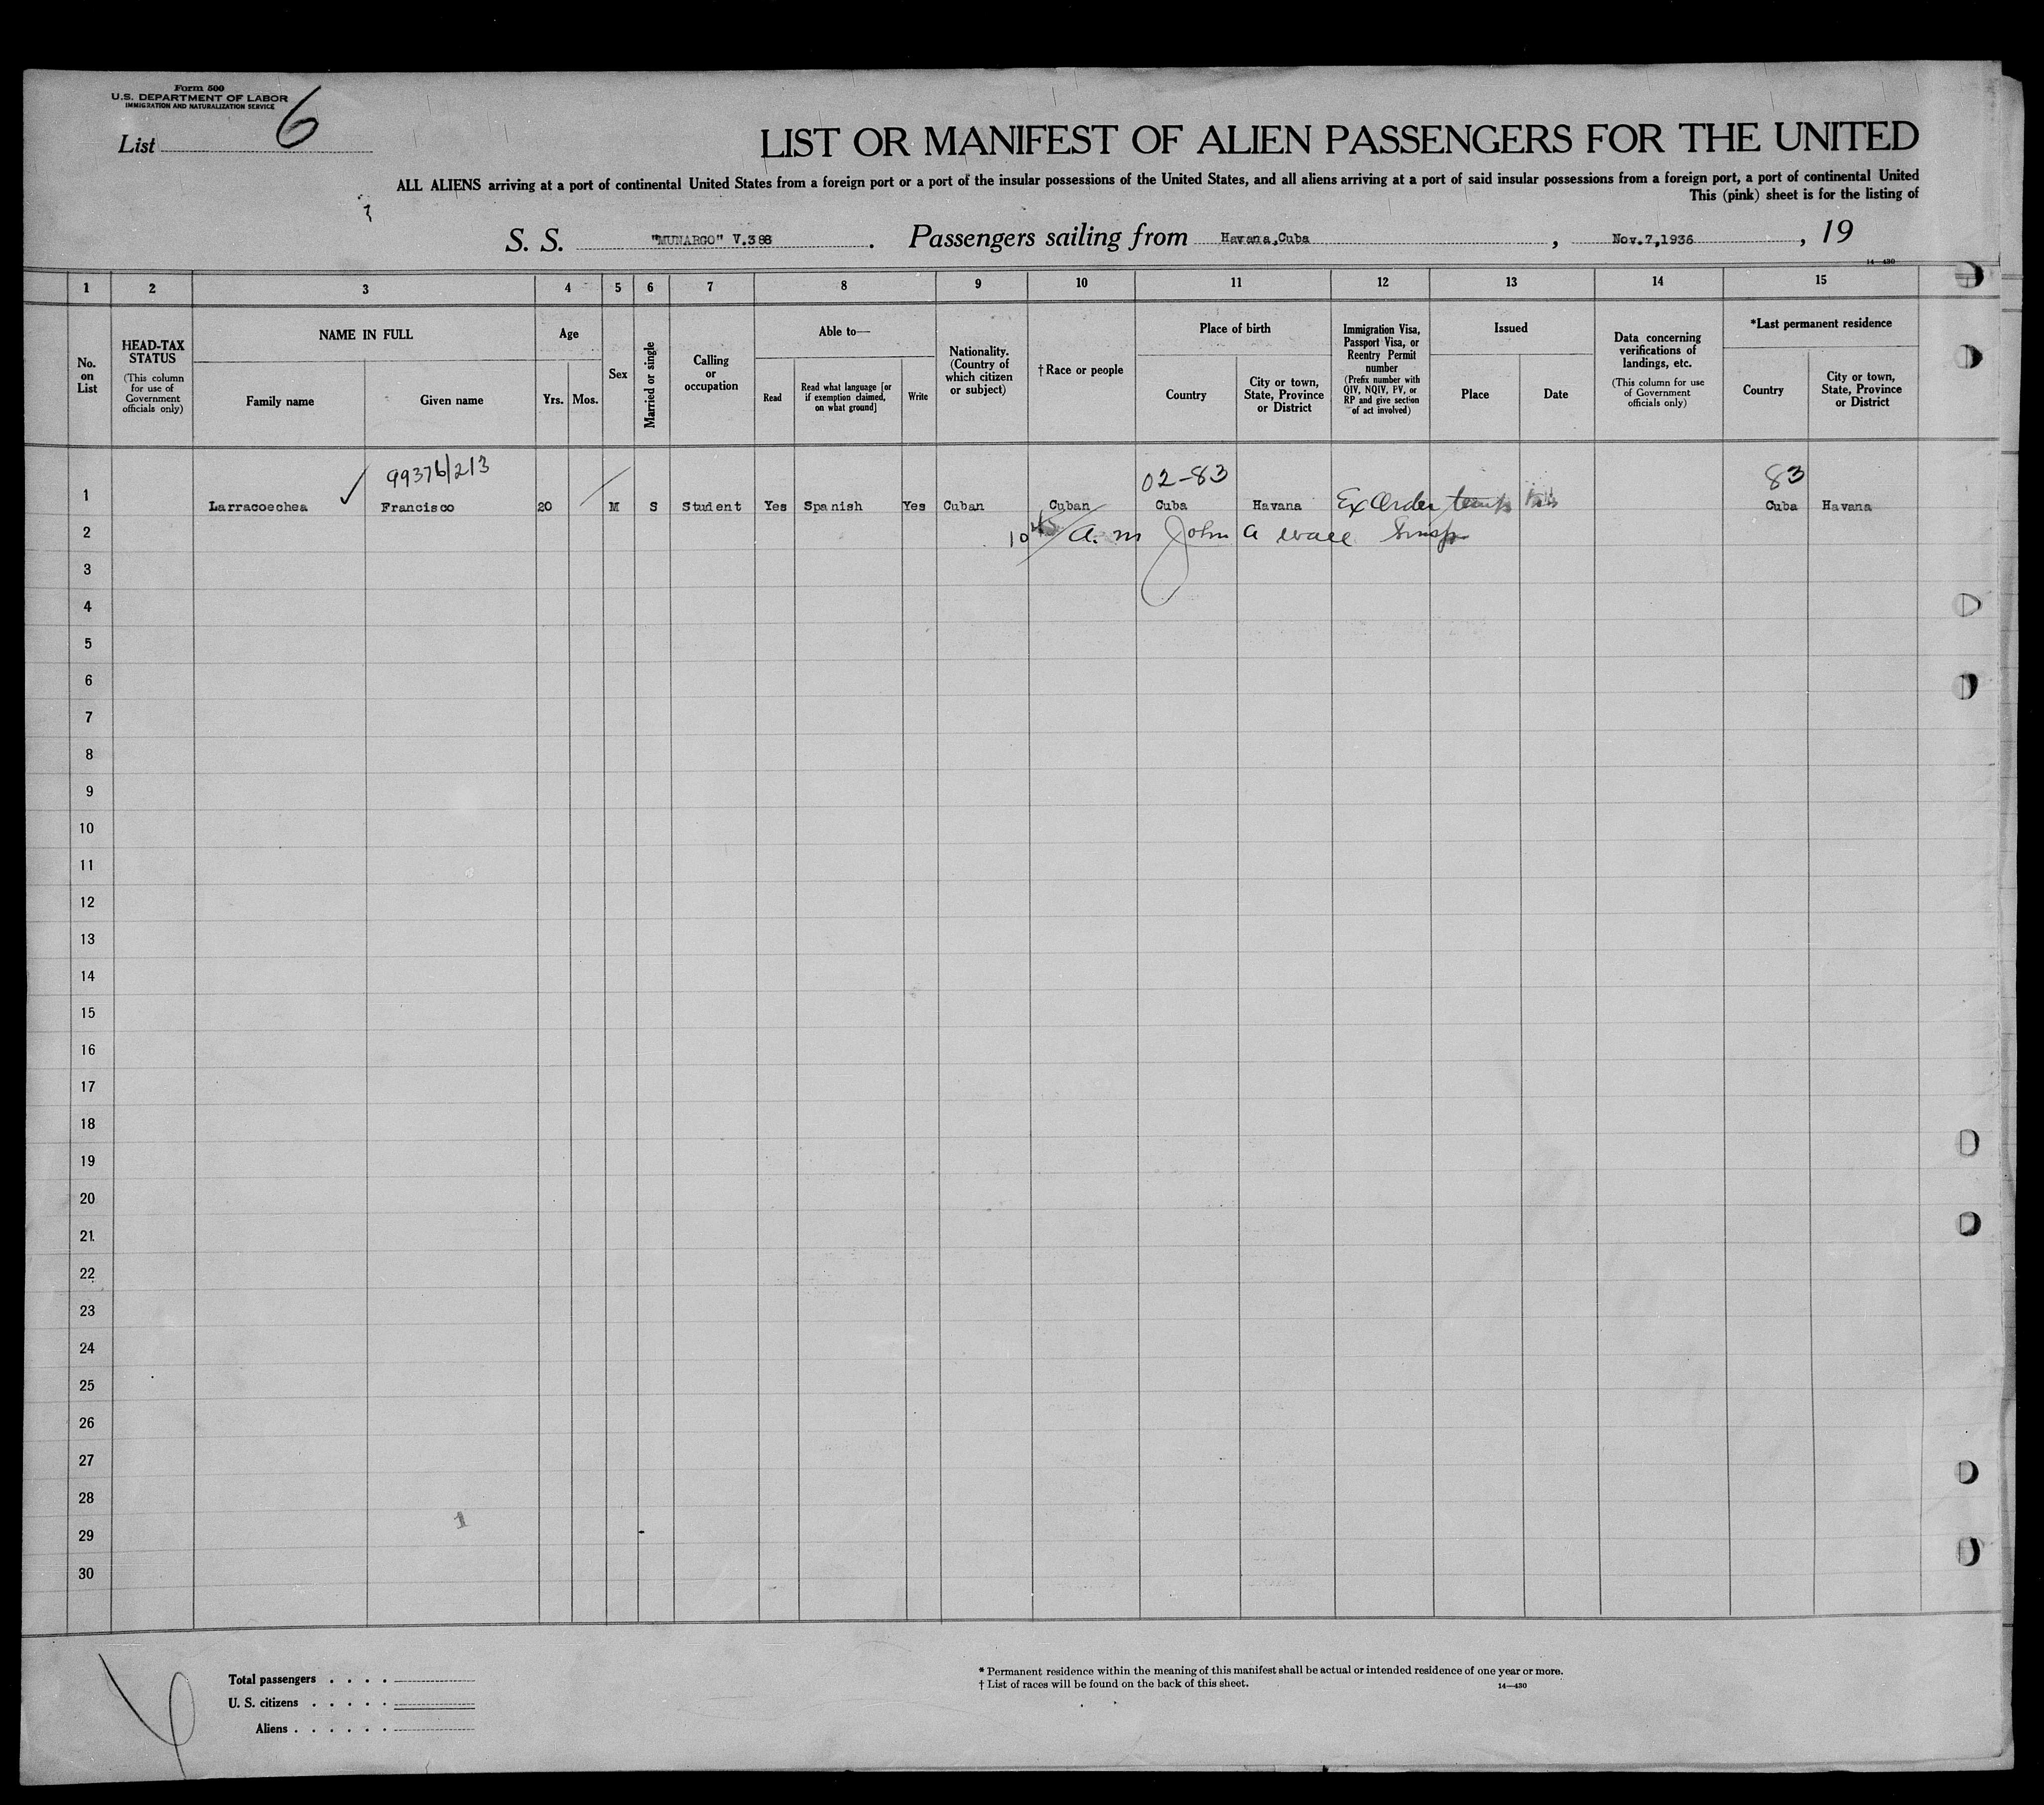 Form 500
U.S. DEPARTMENT OF LABOR
IMMIGRATION AND NATURALIZATION SERVICE
List 6
LIST OR MANIFEST OF ALIEN PASSENGERS FOR THE UNITED
ALL ALIENS arriving at a port of continental United States from a foreign port or a port of the insular possessions of the United States, and all aliens arriving at a port of said insular possessions from a foreign port, a port of continental United
This (pink) sheet is for the listing of
S. S. "MUNARGO" V.388 . Passengers sailing from Havana,Cuba , Nov.7,1936 , 19
14—430
1 2 3 4 5 6 7 8 9 10 11 12 13 14 15
No. on List
HEAD-TAX STATUS
(This column for use of Government officials only)
NAME IN FULL
Family name
Given name
Age
Yrs.
Mos.
Sex
Married or single
Calling or occupation
Able to—
Read
Read what language [or if exemption claimed, on what ground]
Write
Nationality. (Country of which citizen or subject)
†Race or people
Place of birth
Country
City or town, State, Province or District
Immigration Visa, Passport Visa, or Reentry Permit number
(Prefix number with QIV, NQIV, PV, or RP and give section of act involved)
Issued
Place
Date
Data concerning verifications of landings, etc.
(This column for use of Government officials only)
*Last permanent residence
Country
City or town, State, Province or District
99376/213 02-83 83
1 Larracoechea ✓ Francisco 20 M S Student Yes Spanish Yes Cuban Cuban Cuba Havana Ex Order Cuba Havana
2 10 45 a.m John A Insp
3
4
5
6
7
8
9
10
11
12
13
14
15
16
17
18
19
20
21
22
23
24
25
26
27
28
29
30
Total passengers . . . .
U. S. citizens . . . . .
Aliens . . . . . .
* Permanent residence within the meaning of this manifest shall be actual or intended residence of one year or more.
† List of races will be found on the back of this sheet.
14—430